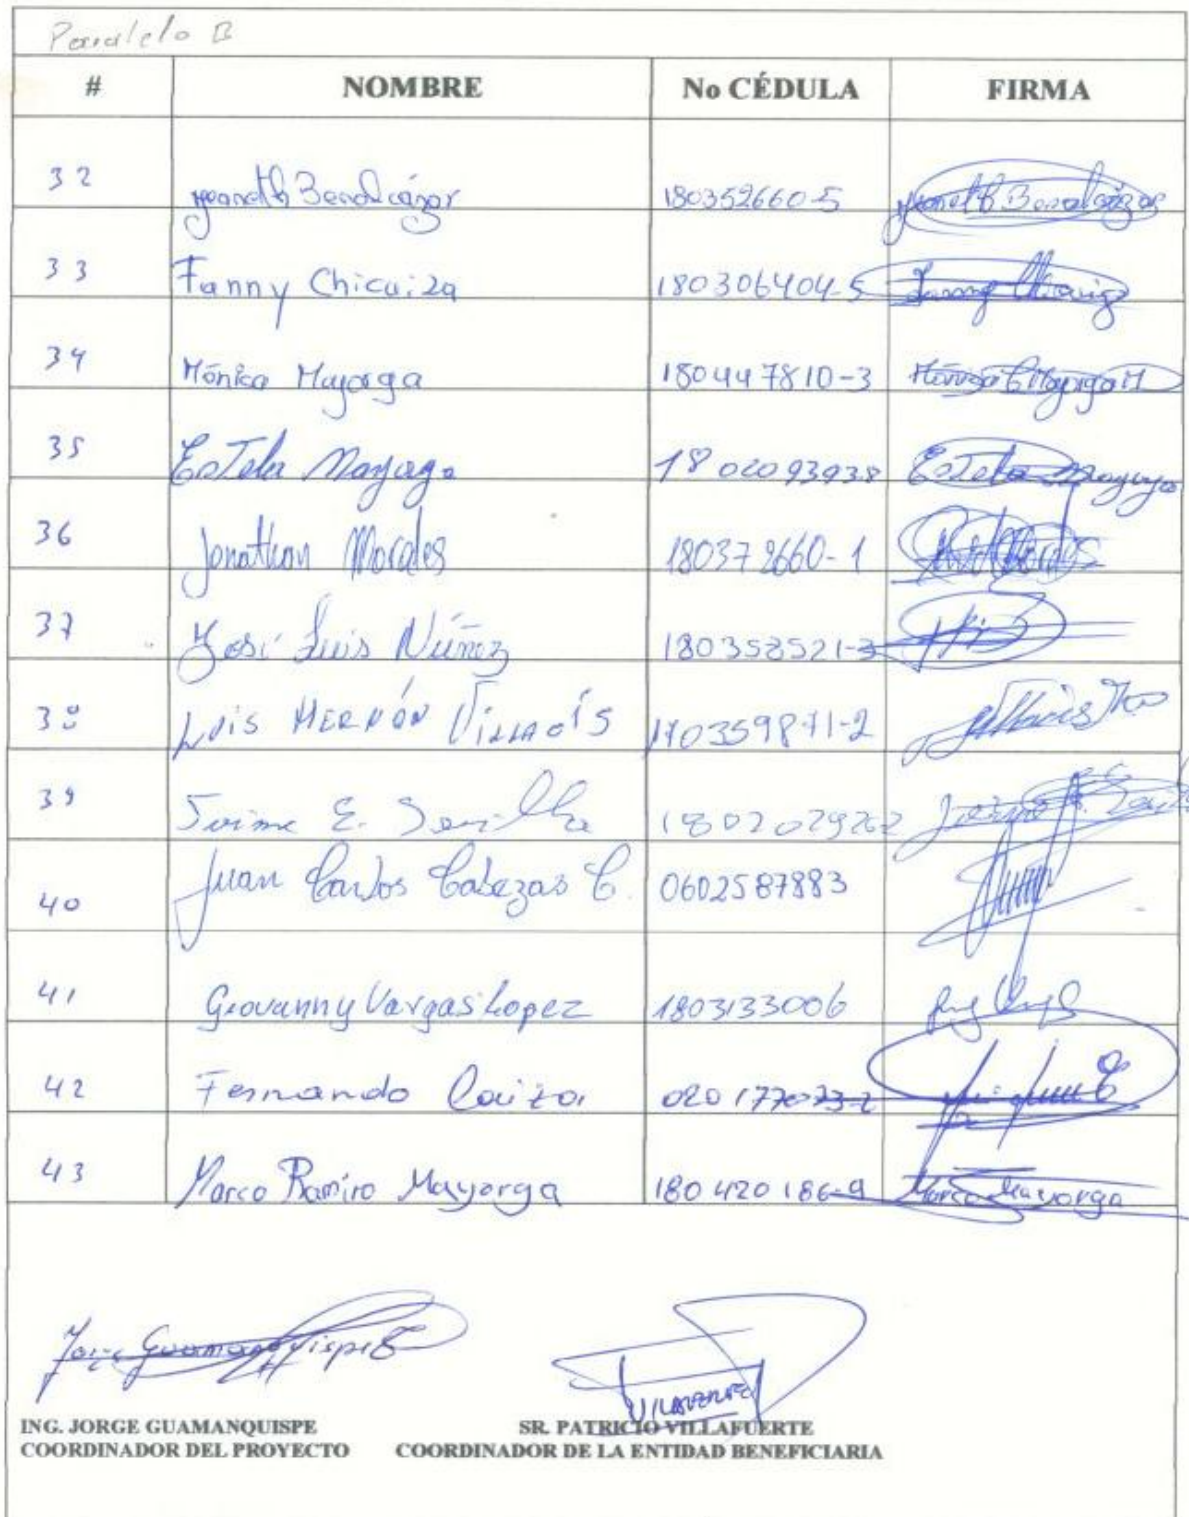 Paralelo B
# NOMBRE No CÉDULA FIRMA
32 Jeaneth Benalcázar 180352660-5 Jeaneth Benalcázar
33 Fanny Chicaiza 180306404-5 Fanny
34 Mónica Mayorga 180447810-3
35 Estela Mayorga 1802093938 Estela Mayorga
36 Jonathan Morales 180372660-1
37 José Luis Núñez 180352521-3
38 Luis HERNÓN VILLACÍS 170359871-2
39 Jaime E. Sevilla
40 Juan Carlos Cabezas C. 0602587883
41 Geovanny Vargas Lopez 1803133006
42 Fernando Caiza 020177073-2
43 Marco Ramiro Mayorga 180420186-9 Marco Mayorga
Jorge Guamanquispe
VILLAFUERTE
ING. JORGE GUAMANQUISPE SR. PATRICIO VILLAFUERTE
COORDINADOR DEL PROYECTO COORDINADOR DE LA ENTIDAD BENEFICIARIA